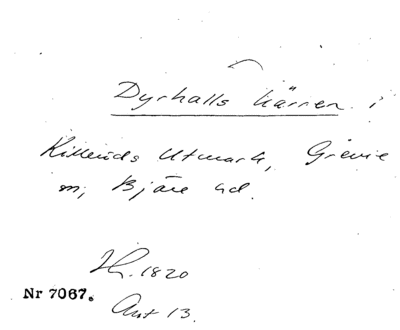 Dyrhalls kärren i
Killeröds Utmark, Grevie
sn, Bjäre hd.
Hr. 1820
Nr 7067.
Ant 13.